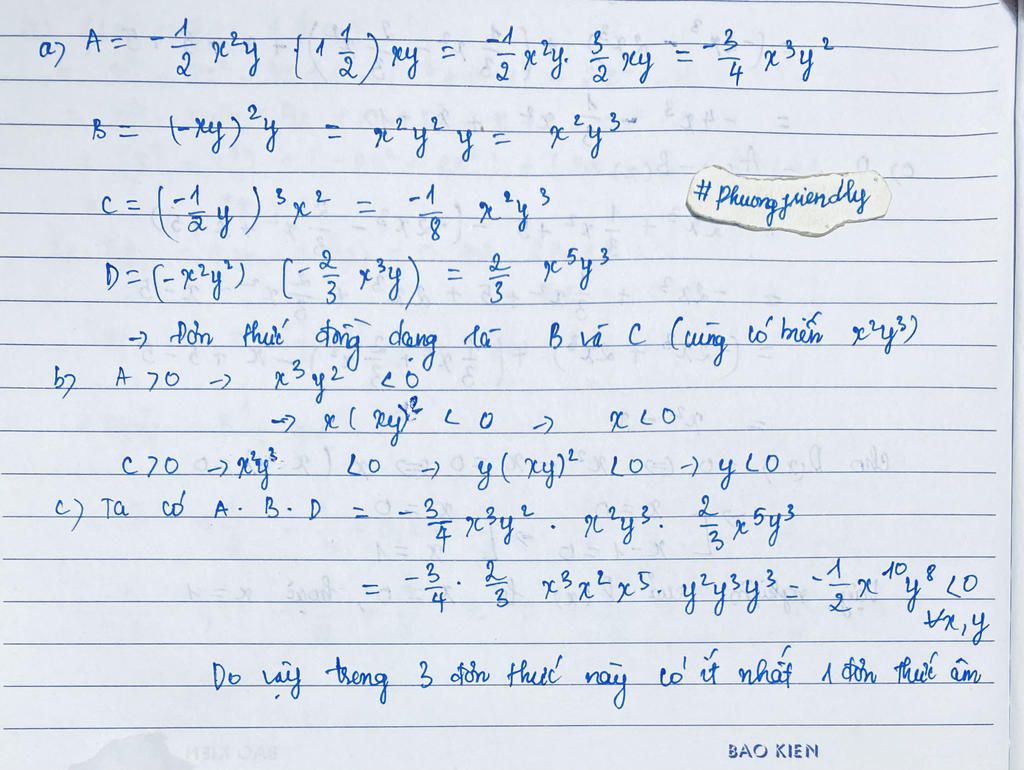 a) A = -1/2 x²y (1 1/2) xy = -1/2 x²y. 3/2 xy = -3/4 x³y²
B = (-xy)²y = x²y² y = x²y³
C = (-1/2 y)³ x² = -1/8 x²y³
#Phuongfriendly
D = (-x²y²) (-2/3 x³y) = 2/3 x⁵y³
→ Đơn thức đồng dạng là B và C (cùng có biến x²y³)
b) A > 0 → x³y² < 0
→ x(xy)² < 0 → x < 0
C > 0 → x²y³ < 0 → y(xy)² < 0 → y < 0
c) Ta có A . B . D = -3/4 x³y² . x²y³ . 2/3 x⁵y³
= -3/4 . 2/3 x³x²x⁵ . y²y³y³ = -1/2 x¹⁰y⁸ < 0
∀x,y
Do vậy trong 3 đơn thức này có ít nhất 1 đơn thức âm
BAO KIEN